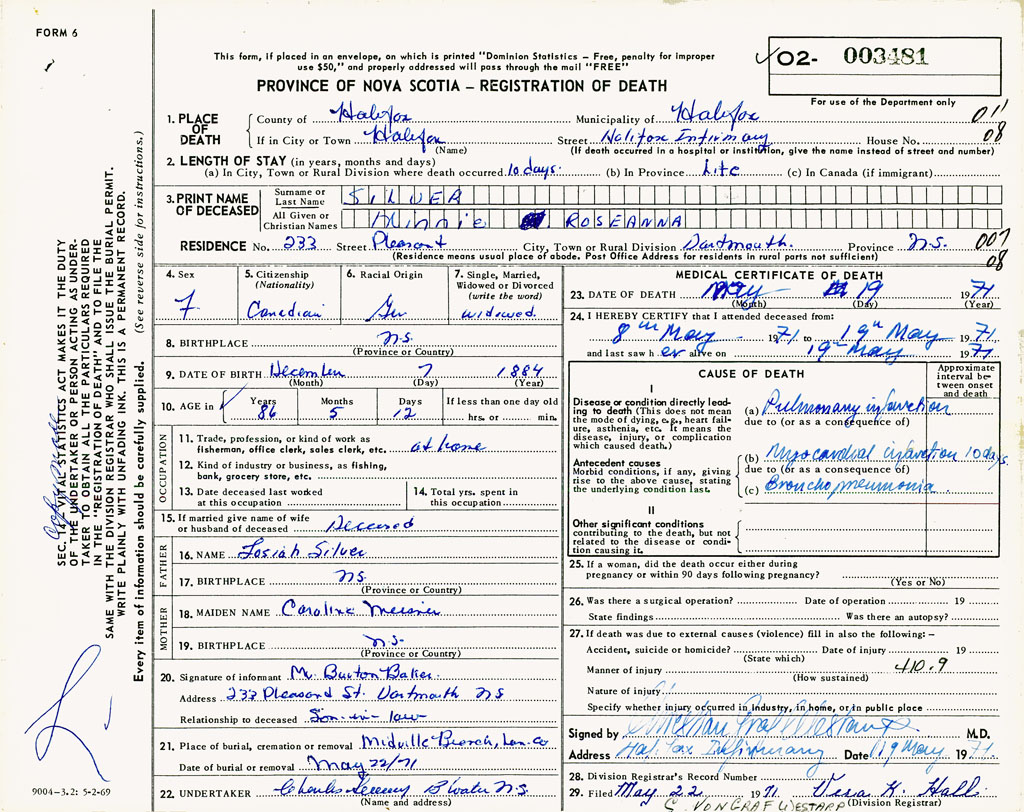 FORM 6
This form, if placed in an envelope, on which is printed "Dominion Statistics – Free, penalty for improper
use $50," and properly addressed will pass through the mail "FREE"
O2- 003481
PROVINCE OF NOVA SCOTIA – REGISTRATION OF DEATH
For use of the Department only
1. PLACE OF DEATH
County of Halifax Municipality of Halifax 011
If in City or Town Halifax Street Halifax Infirmary House No. 08
(Name) (If death occurred in a hospital or institution, give the name instead of street and number)
2. LENGTH OF STAY (in years, months and days)
(a) In City, Town or Rural Division where death occurred 10 days. (b) In Province Life (c) In Canada (if immigrant)
3. PRINT NAME OF DECEASED
Surname or Last Name SILVER
All Given or Christian Names Minnie ROSEANNA
RESIDENCE No. 233 Street Pleasant City, Town or Rural Division Dartmouth. Province N.S. 007
(Residence means usual place of abode. Post Office Address for residents in rural parts not sufficient) 08
4. Sex
F
5. Citizenship
(Nationality)
Canadian
6. Racial Origin
Ger
7. Single, Married,
Widowed or Divorced
(write the word)
widowed
8. BIRTHPLACE N.S.
(Province or Country)
9. DATE OF BIRTH December 7 1884
(Month) (Day) (Year)
10. AGE in Years Months Days If less than one day old
86 5 12 hrs. or min.
OCCUPATION
11. Trade, profession, or kind of work as
fisherman, office clerk, sales clerk, etc. at home
12. Kind of industry or business, as fishing,
bank, grocery store, etc.
13. Date deceased last worked
at this occupation
14. Total yrs. spent in
this occupation
15. If married give name of wife
or husband of deceased Deceased
FATHER
16. NAME Josiah Silver
17. BIRTHPLACE N.S.
(Province or Country)
MOTHER
18. MAIDEN NAME Caroline
19. BIRTHPLACE N.S.
(Province or Country)
20. Signature of informant Mr. Burton Baker.
Address 233 Pleasant St. Dartmouth NS
Relationship to deceased Son-in-law
21. Place of burial, cremation or removal Midville Branch, Lun. Co
Date of burial or removal May 22/71
22. UNDERTAKER Charles B'Water N.S.
(Name and address)
MEDICAL CERTIFICATE OF DEATH
23. DATE OF DEATH May 19 1971
(Month) (Day) (Year)
24. I HEREBY CERTIFY that I attended deceased from:
8th May 1971 to 19th May 1971
and last saw h er alive on 19th May 1971
CAUSE OF DEATH
Approximate
interval be-
tween onset
and death
I
Disease or condition directly lead-
ing to death (This does not mean
the mode of dying, e.g., heart fail-
ure, asthenia, etc. It means the
disease, injury, or complication
which caused death.)
(a) Pulmonary infarction
due to (or as a consequence of)
Antecedent causes
Morbid conditions, if any, giving
rise to the above cause, stating
the underlying condition last.
(b) Myocardial infarction 10 days.
due to (or as a consequence of)
(c) Bronchopneumonia.
II
Other significant conditions
contributing to the death, but not
related to the disease or condi-
tion causing it.
25. If a woman, did the death occur either during
pregnancy or within 90 days following pregnancy?
(Yes or No)
26. Was there a surgical operation? Date of operation 19
State findings Was there an autopsy?
27. If death was due to external causes (violence) fill in also the following: –
Accident, suicide or homicide? Date of injury 19
(State which)
Manner of injury 410.9
(How sustained)
Nature of injury
Specify whether injury occurred in industry, in home, or in public place
Signed by M.D.
Address Halifax Infirmary Date 19 May 1971.
28. Division Registrar's Record Number
29. Filed May 22 1971 Vera K. Hall
(Division Registrar)
C. VON GRAF WESTARP
SEC. 14 – VITAL STATISTICS ACT MAKES IT THE DUTY
OF THE UNDERTAKER OR PERSON ACTING AS UNDER-
TAKER TO OBTAIN ALL THE PARTICULARS REQUIRED
IN THE "REGISTRATION OF DEATH" AND TO FILE THE
SAME WITH THE DIVISION REGISTRAR WHO SHALL ISSUE THE BURIAL PERMIT.
WRITE PLAINLY WITH UNFADING INK. THIS IS A PERMANENT RECORD.
Every item of information should be carefully supplied. (See reverse side for instructions.)
9004–3.2: 5-2-69